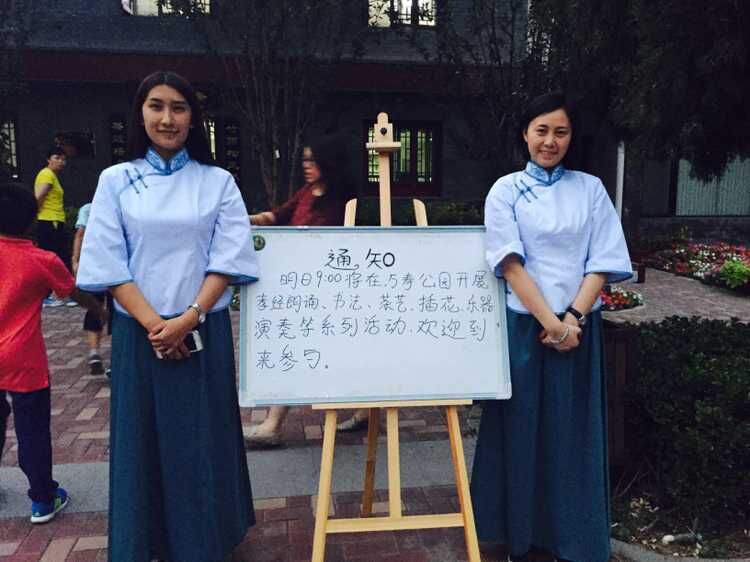 通。知
明日9:00将在万寿公园开展
孝经朗诵、书法、茶艺、插花、乐器
演奏等系列活动、欢迎到
来参与。